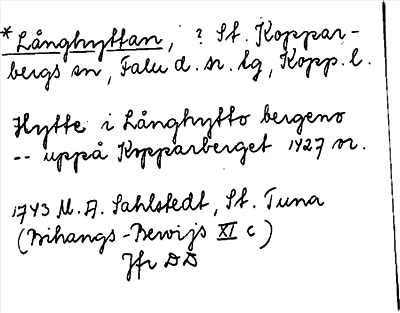 * Långhyttan, ? St. Koppar-
bergs sn, Falu d. sr. lg, Kopp. l.
Hytte i Långhytto bergeno
-- uppå Kopparberget 1427 or.
1743 M. A. Sahlstedt, St. Tuna
(Bihangs-Bewijs XI c)
Jfr DD